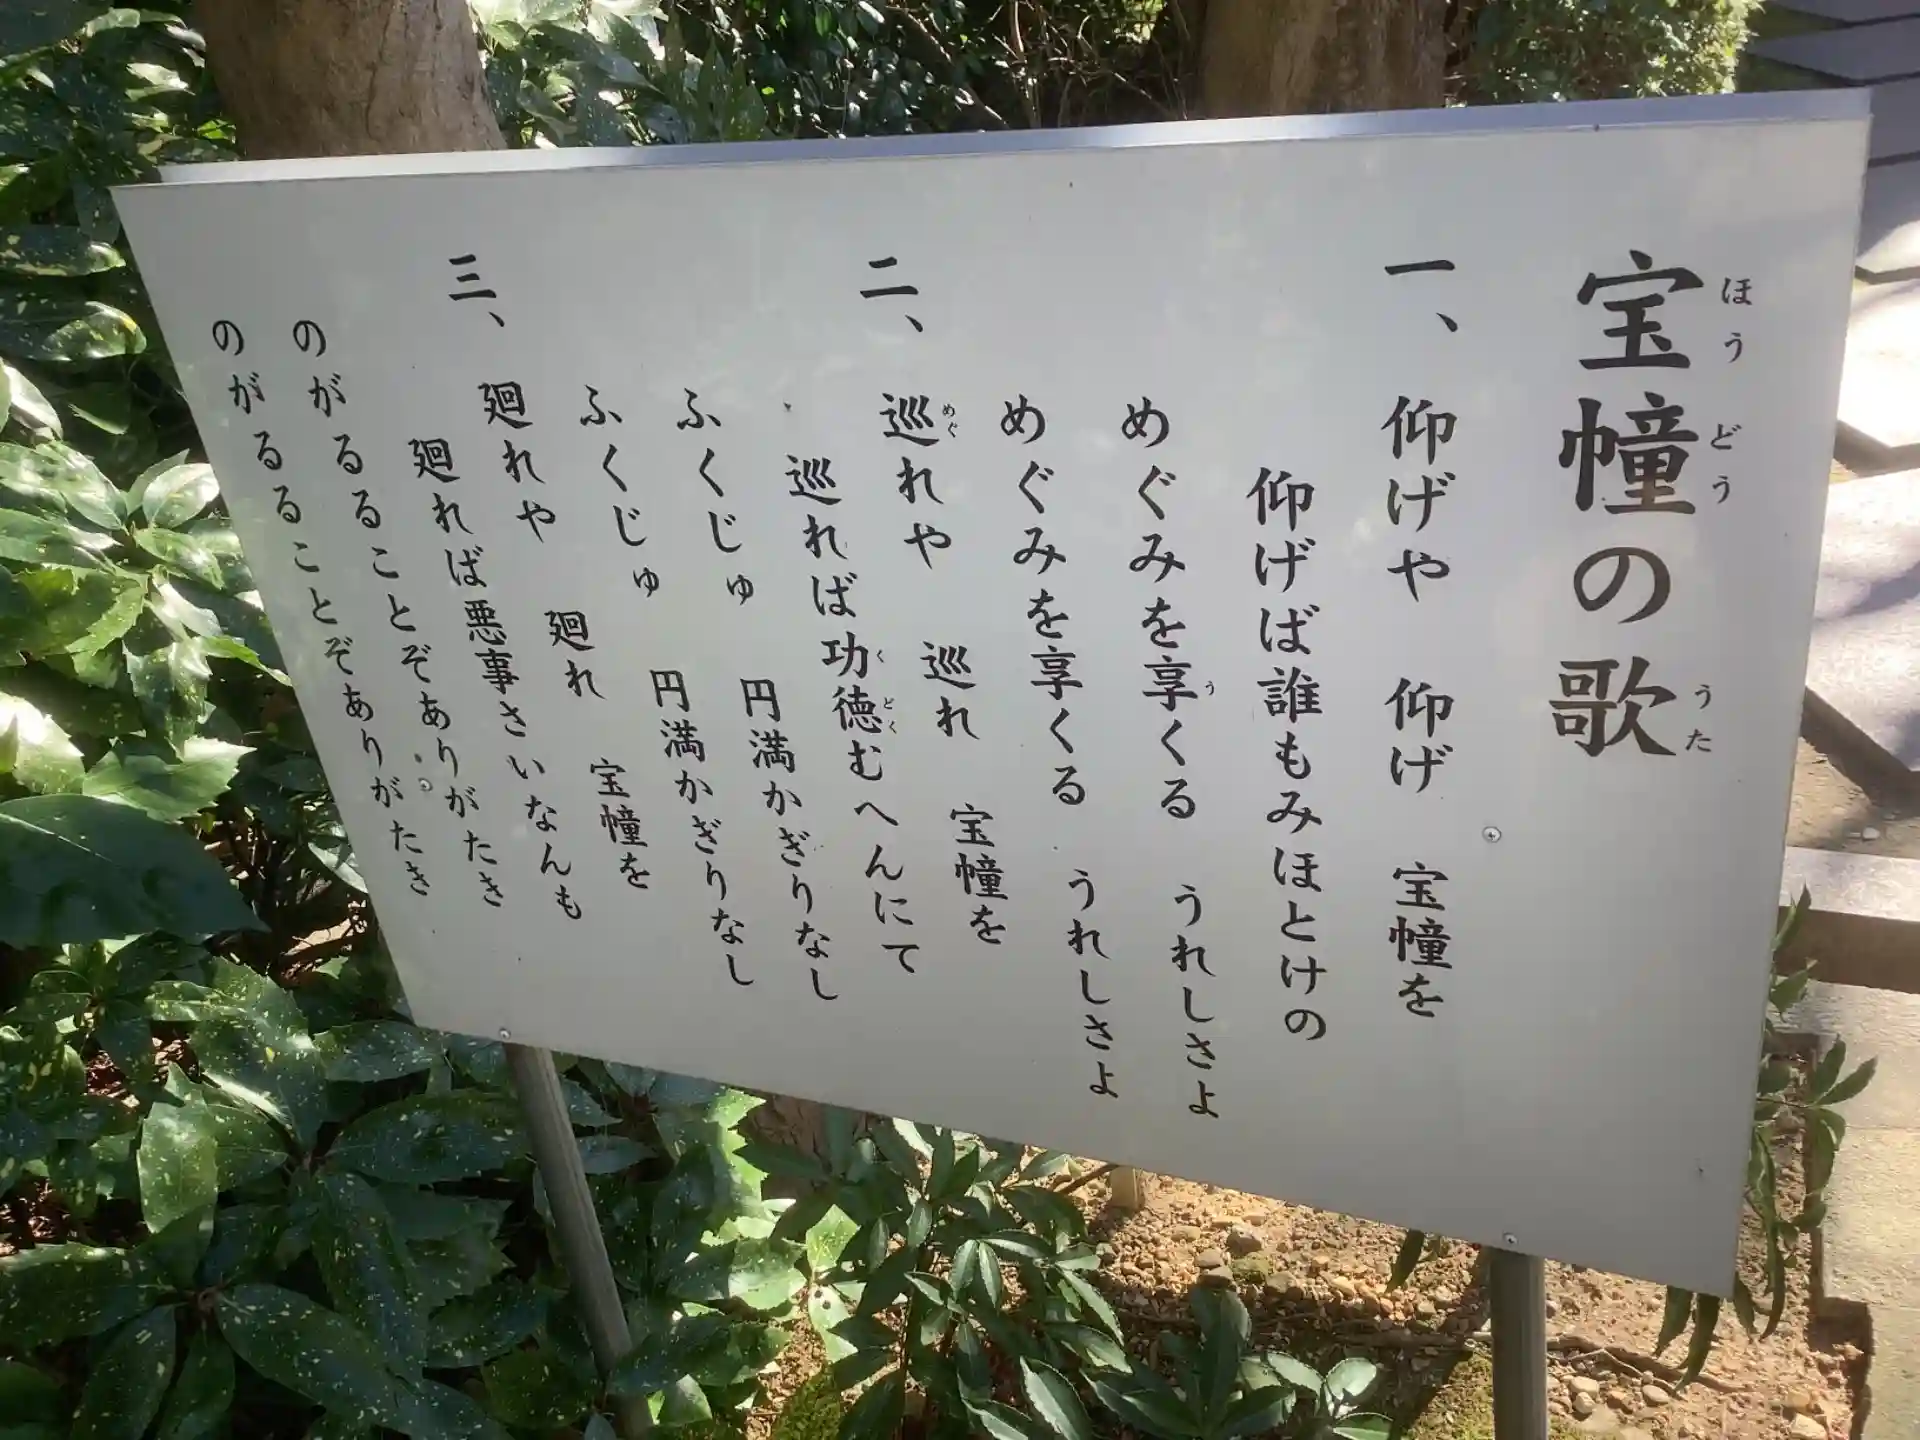 宝幢の歌
一、仰げや 仰げ 宝幢を
仰げば誰もみほとけの
めぐみを享くる うれしさよ
めぐみを享くる うれしさよ
二、巡れや 巡れ 宝幢を
巡れば功徳むへんにて
ふくじゅ 円満かぎりなし
ふくじゅ 円満かぎりなし
三、廻れや 廻れ 宝幢を
廻れば悪事さいなんも
のがるることぞありがたき
のがるることぞありがたき